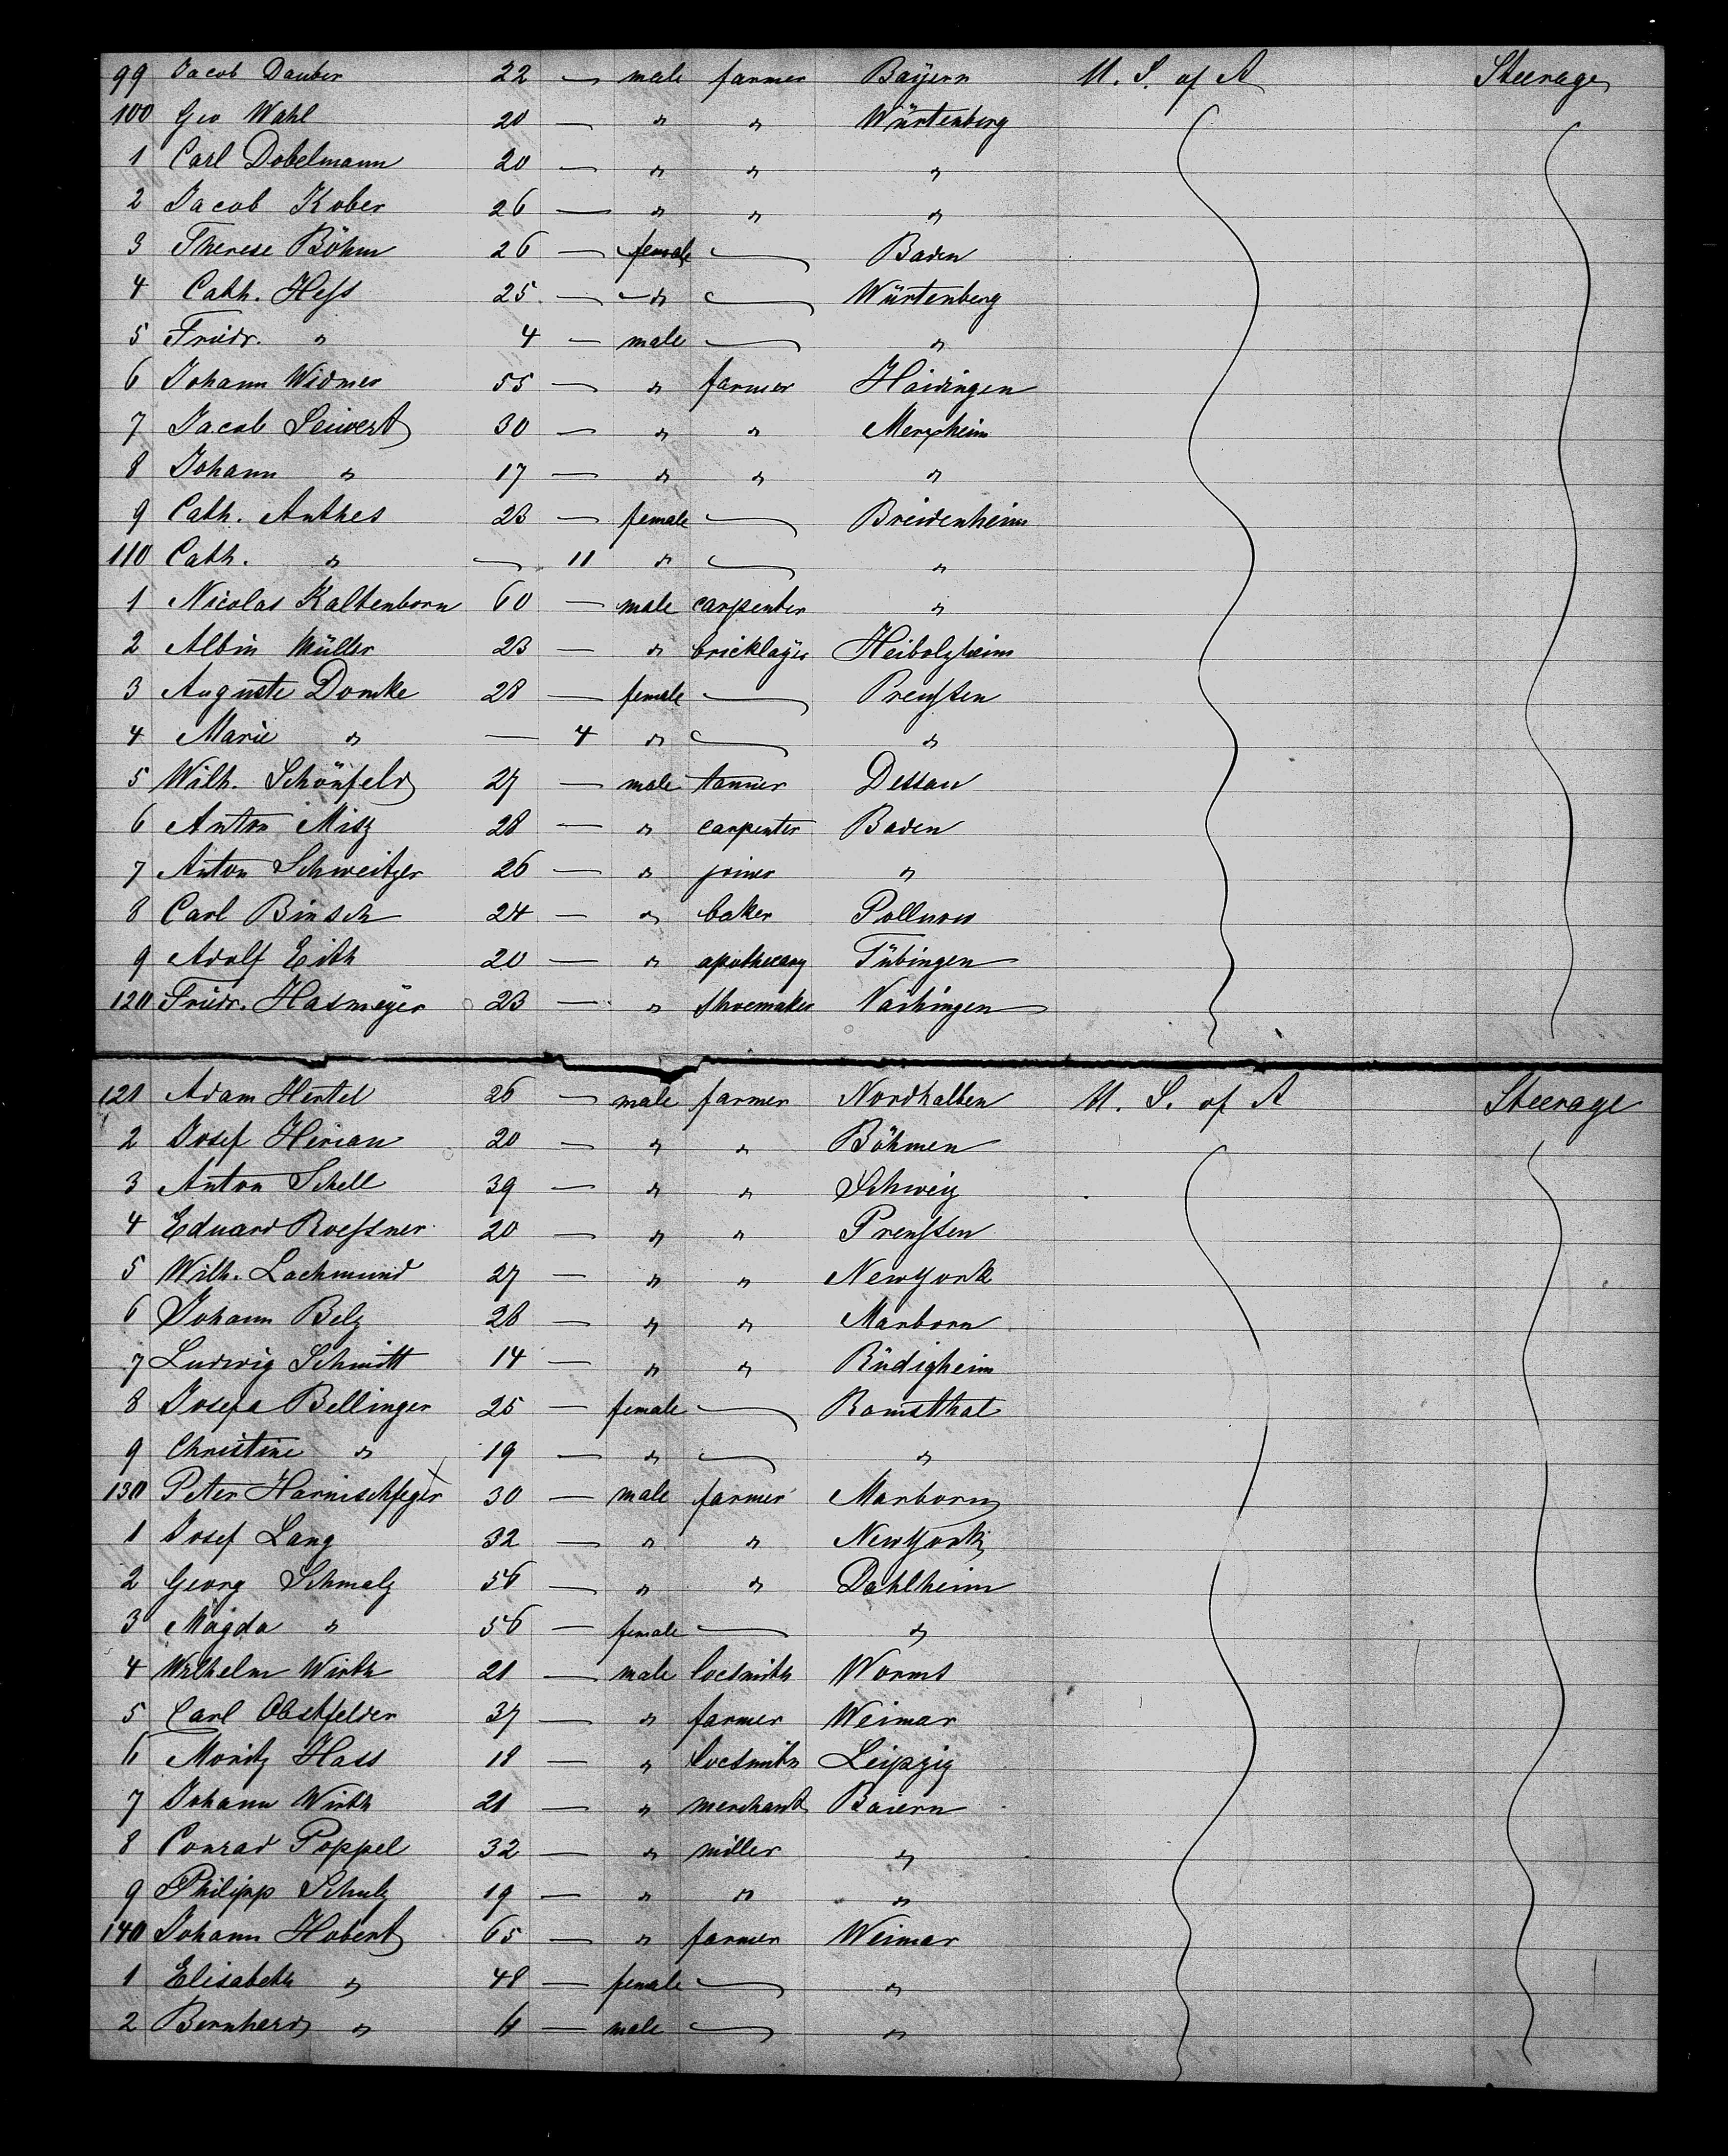 99 Jacob Dauber 22 — male farmer Bayern U. S. of A Steerage
100 Geo Wahl 20 — " " Würtenberg
1 Carl Dobelmann 20 — " " "
2 Jacob Kober 26 — " " "
3 Therese Böhm 26 — female — Baden
4 Cath. Heſs 25 — " — Würtenberg
5 Friedr. " 4 — male — "
6 Johann Widmer 55 — " farmer Haidingen
7 Jacob Seiwert 30 — " " Merxheim
8 Johann " 17 — " " "
9 Cath. Anthes 23 — female — Breidenheim
110 Cath. " — 11 " — "
1 Nicolas Kaltenborn 60 — male carpenter "
2 Albin Müller 23 — " bricklayer Heibolzheim
3 Auguste Domke 28 — female — Preuſsen
4 Marie " — 4 " — "
5 Wilh. Schönfeld 27 — male tanner Dessau
6 Anton Misz 28 — " carpenter Baden
7 Anton Schweitzer 26 — " joiner "
8 Carl Binsch 24 — " baker
9 Adolf Eith 20 — " apothecary Tübingen
120 Friedr. Hasmeyer 23 — " Shoemaker Naihingen
121 Adam Hertel 26 — male farmer Nordhalben U. S. of A Steerage
2 Josef Herian 20 — " " Böhmen
3 Anton Schell 39 — " " Schweiz
4 Eduard Roeſsner 20 — " " Preuſsen
5 Wilh. Lachmund 27 — " " NewYork
6 Johann Belz 28 — " " Marborn
7 Ludwig Schmitt 14 — " " Rüdigheim
8 Josefa Bellinger 25 — female — Romsthal
9 Christine " 19 — " — "
130 Peter Harnischfeger X 30 — male farmer Marborn
1 Josef Lang 32 — " " NewYork
2 Georg Schmalz 56 — " " Dahlheim
3 Magda " 56 — female — "
4 Wilhelm Wirth 21 — male locsmith Worms
5 Carl Obstfelder 37 — " farmer Weimar
6 Moritz Hass 18 — " locsmith Leipzig
7 Johann Wirth 21 — " merchant Baiern
8 Conrad Poppel 32 — " miller "
9 Philipp Schulz 19 — " " "
140 Johann Hobert 65 — " farmer Weimar
1 Elisabeth " 48 — female — "
2 Bernherd " — male — "